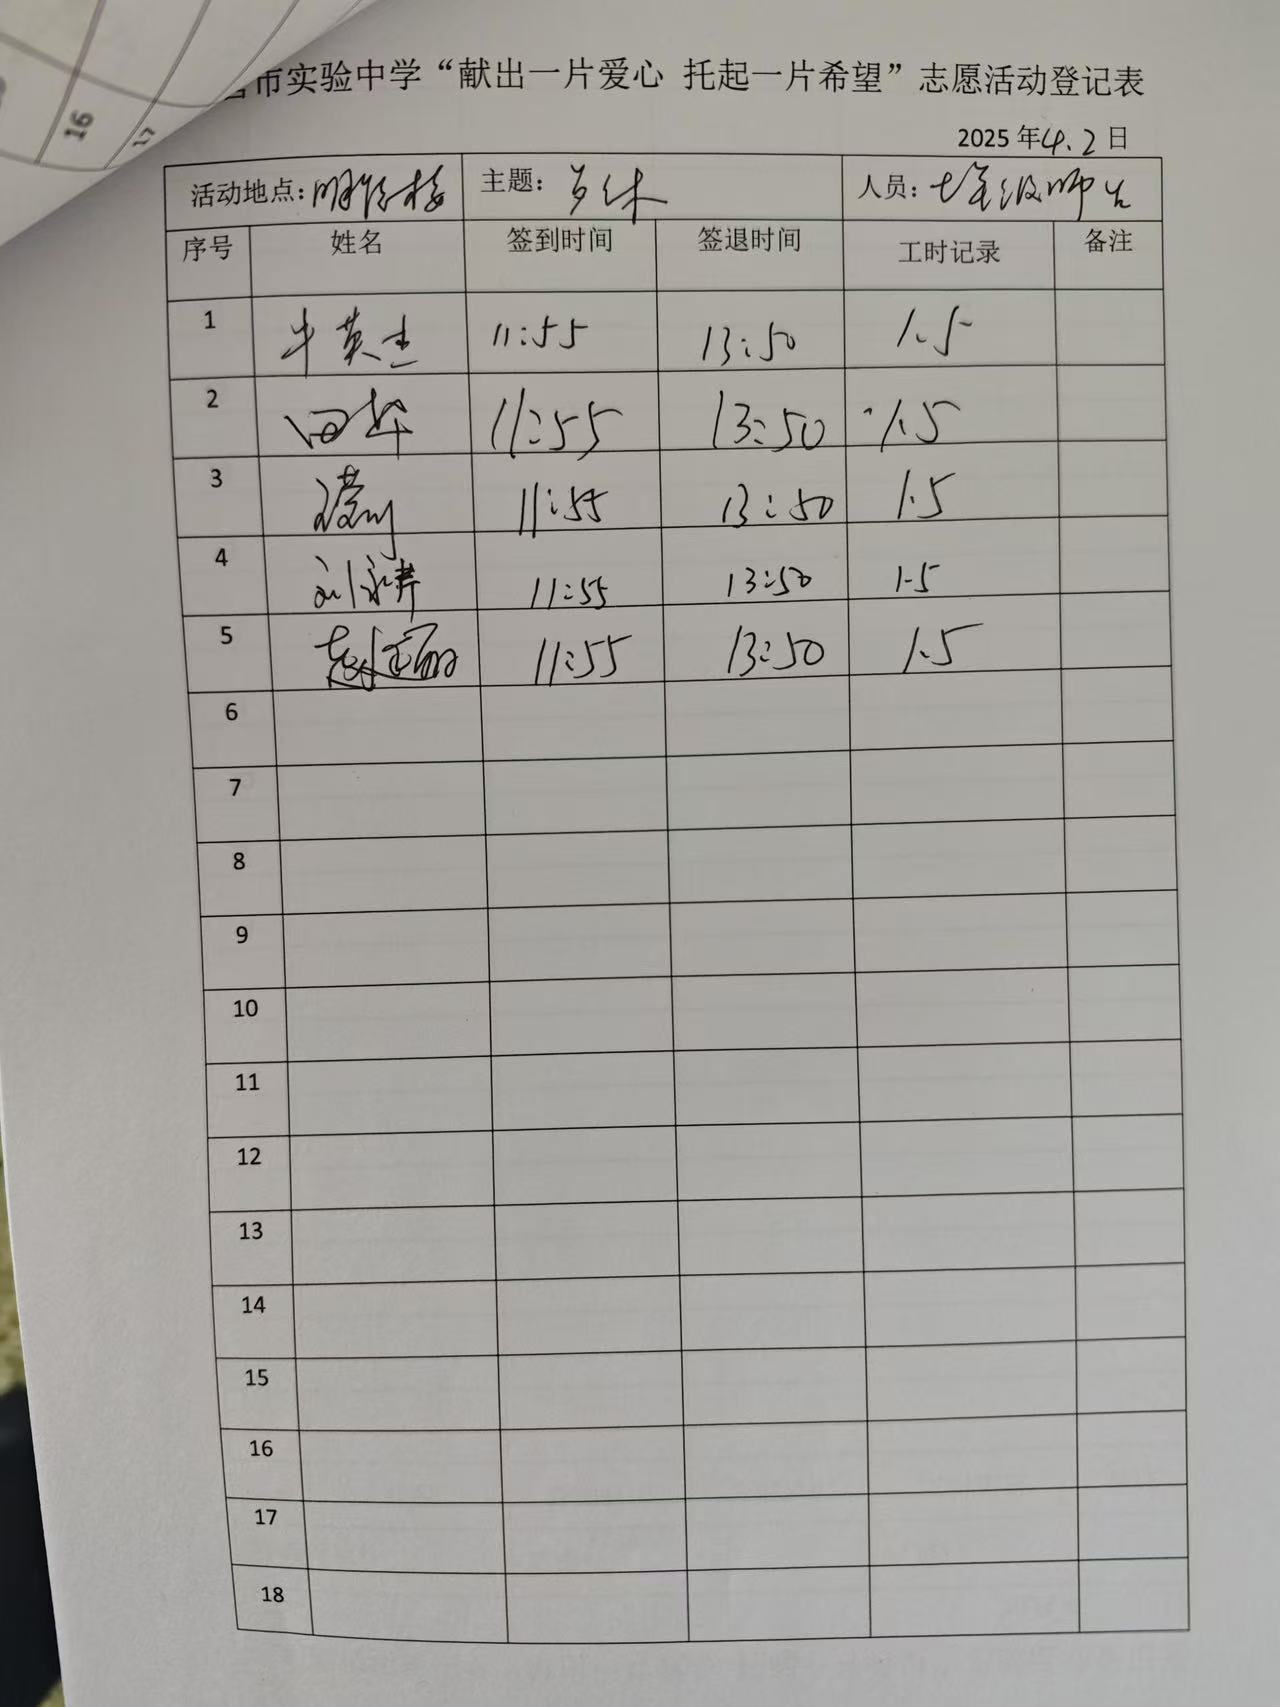 市实验中学“献出一片爱心 托起一片希望”志愿活动登记表
2025年4.2日
活动地点: 主题: 午休 人员: 七年级师生
序号 姓名 签到时间 签退时间 工时记录 备注
1 牛英杰 11:55 13:50 1.5
2 田华 11:55 13:50 1.5
3 11:55 13:50 1.5
4 刘 11:55 13:50 1.5
5 11:55 13:50 1.5
6
7
8
9
10
11
12
13
14
15
16
17
18
16
17